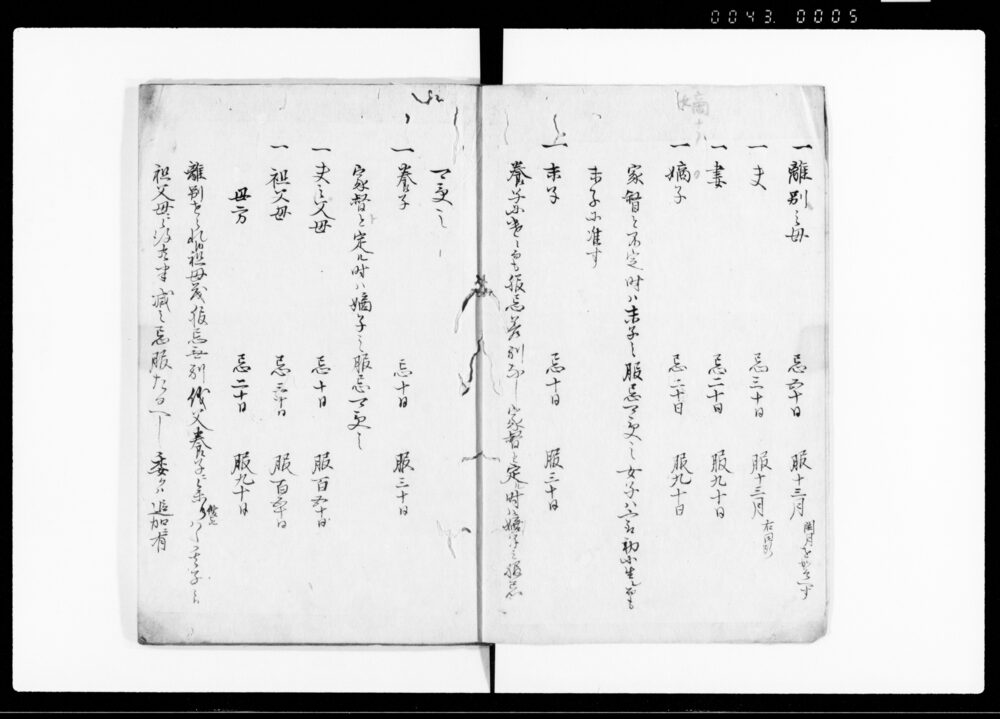 0043. 0005
一 離別之母 忌五十日 服十三月 閏月をかそへす
一 夫 忌三十日 服十三月 右同断
一 妻 忌二十日 服九十日
一 嫡子 忌二十日 服九十日
家督と不定時ハ末子之服忌可受之女子ハ 初に生れても
末子に准す
一 末子 忌十日 服三十日
養子に遣しても服忌差別なし家督と定ル時は嫡子之服忌
可受之
一 養子 忌十日 服三十日
家督と定ル時ハ嫡子之服忌可受之
一 夫之父母 忌三十日 服百五十日
一 祖父母 忌三十日 服百五十日
母方 忌二十日 服九十日
離別せられ候祖母茂服忌無別
祖父母 半減之忌服たるへし委クハ追加ニ有